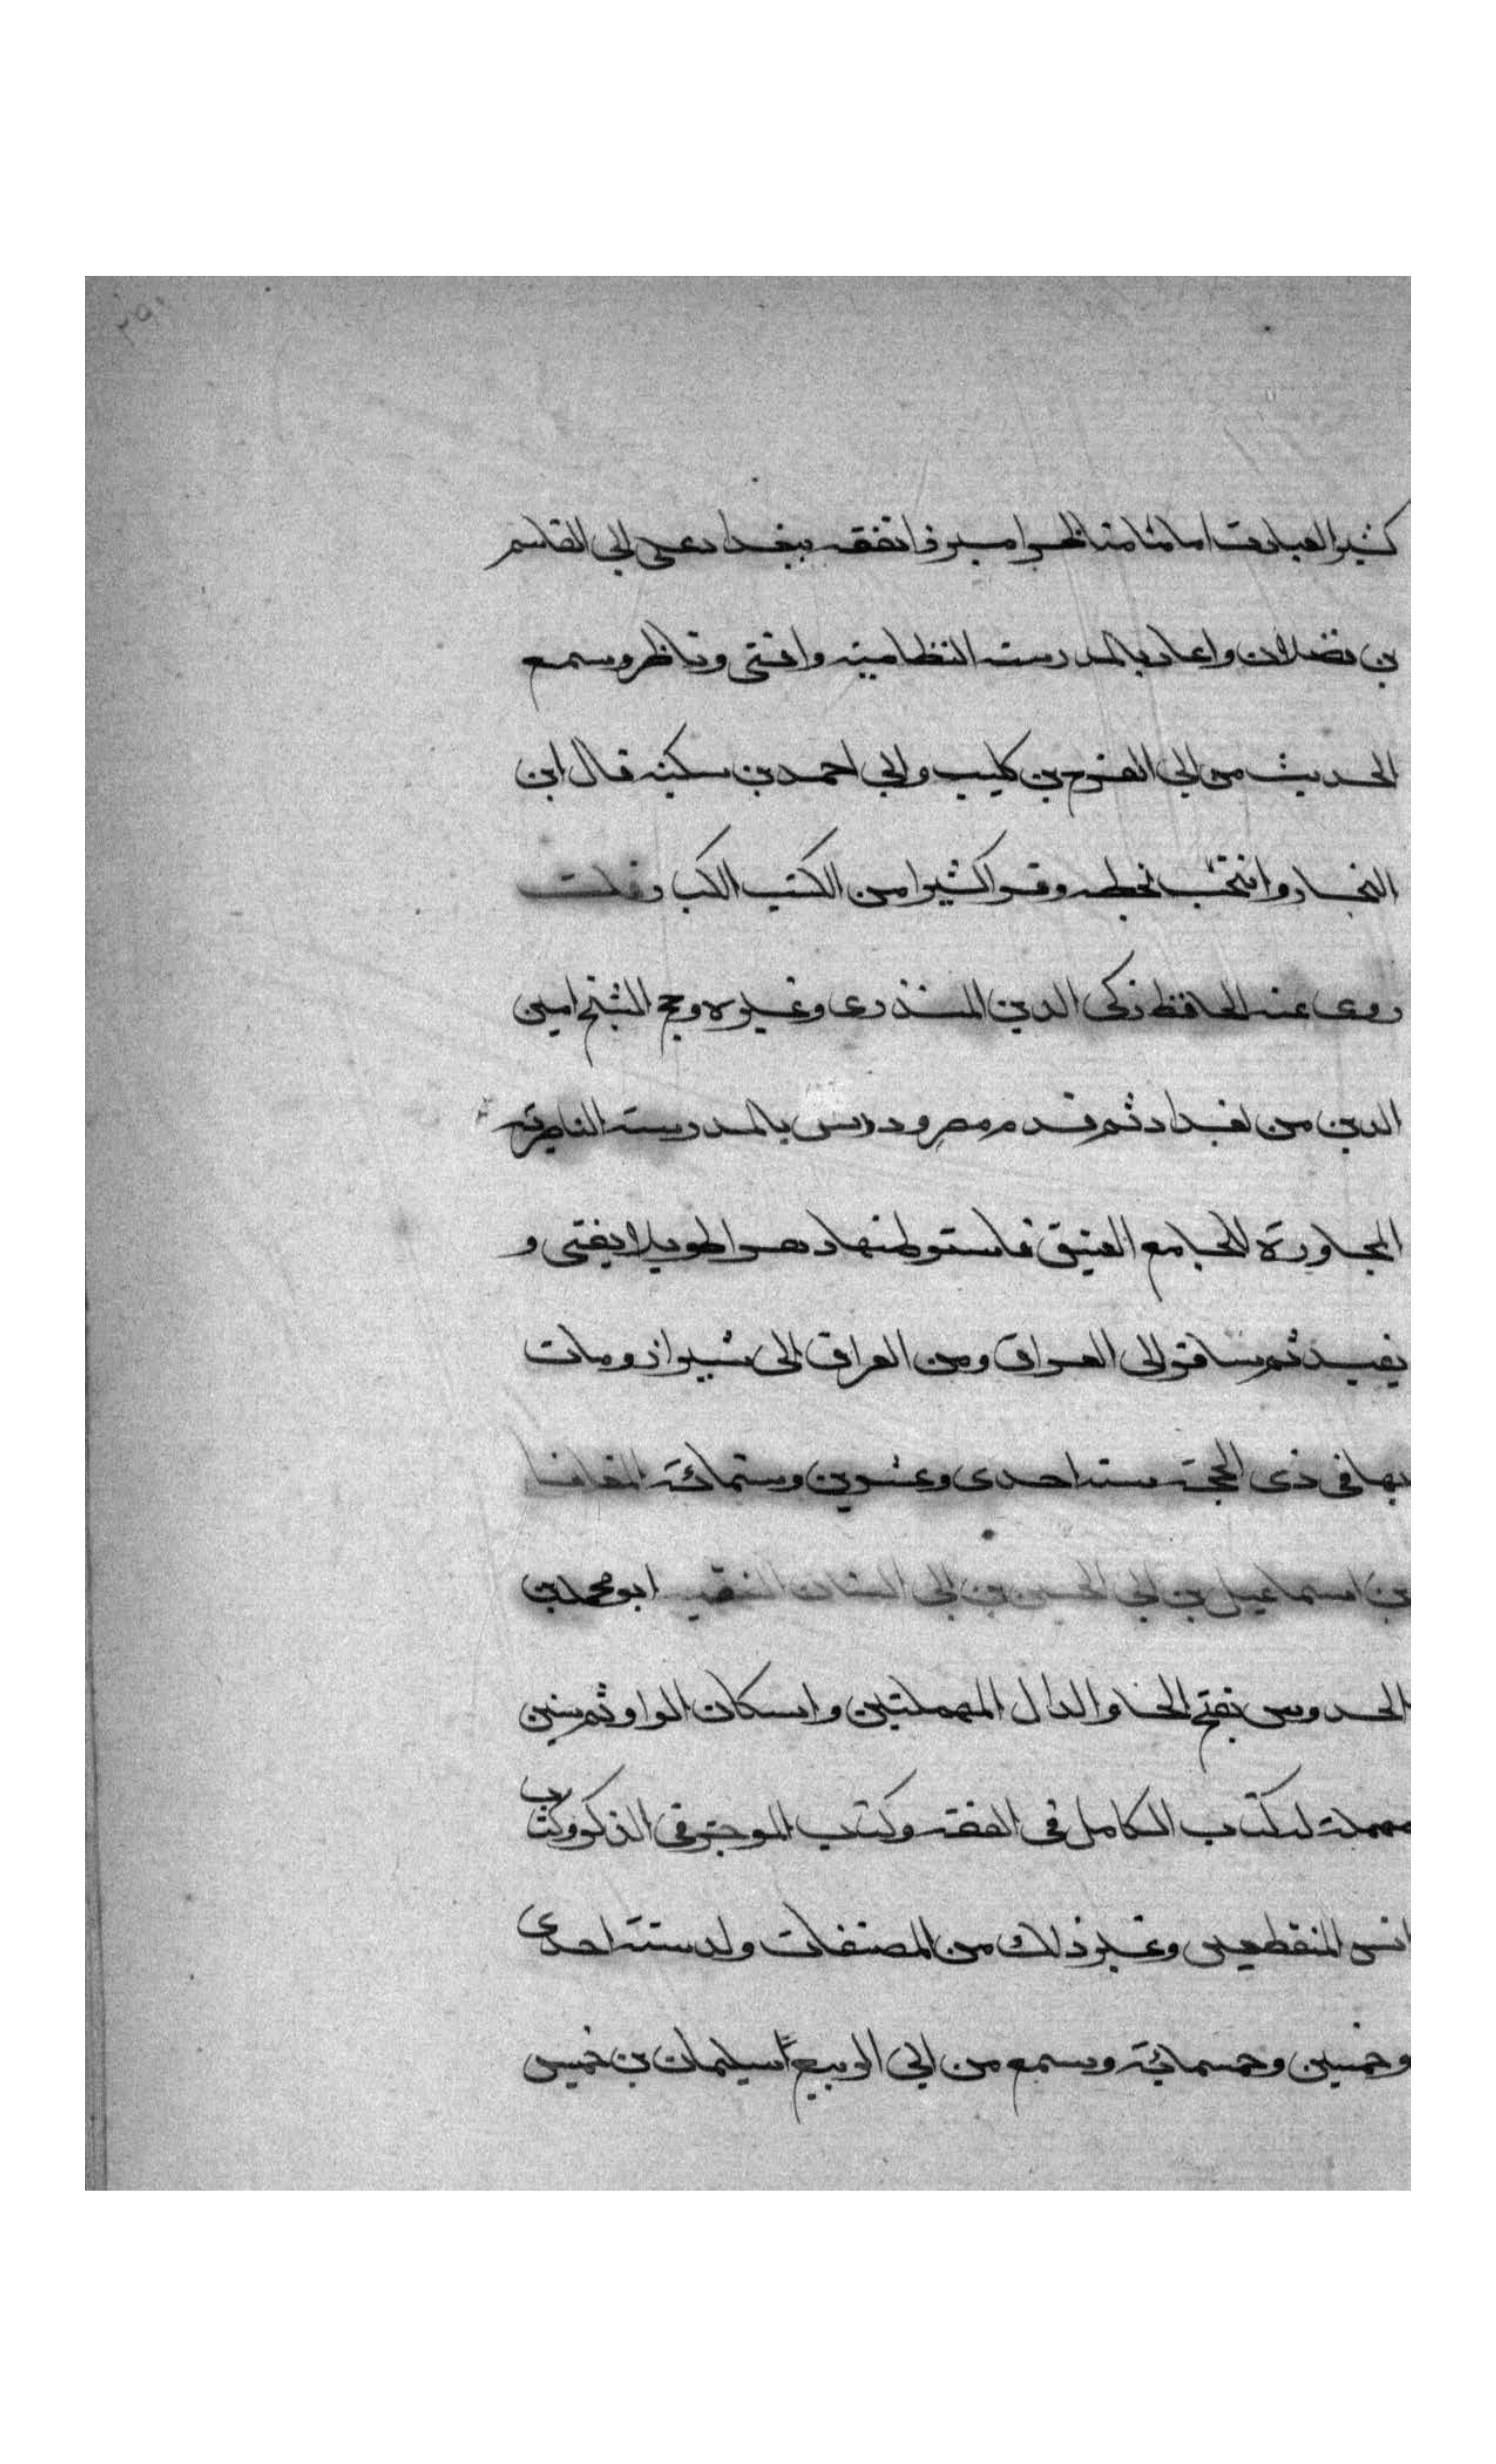 ٢٩٠
كثير العبادة اماما مناظرا مبرزا تفقه ببغداد على ابي القاسم
بن فضلان واعاد بالمدرسة النظامية وافتى وناظر وسمع
الحديث من ابي الفرج بن كليب وابي احمد بن سكينة قال ابن
النجار وانتخب بخطه وقرا كثيرا من الكتب الكبار قلت
روى عنه الحافظ زكي الدين المنذرى وغيره وحج الشيخ امين
الدين من بغداد ثم قدم مصر ودرس بالمدرسة الناصرية
المجاورة للجامع العتيق فاستوطنها دهرا طويلا يفتى و
يفيد ثم سافر الى العراق ومن العراق الى شيراز ومات
بها في ذى الحجة سنة احدى وعشرين وستمائة المعافا
بن اسماعيل بن ابي الحسين بن ابي السنان الفقيه ابو محمد بن
الحدوس بفتح الحا والدال المهملتين واسكان الواو ثم سين
مهملة له كتاب الكامل فى الفقه وكتاب الموجز فى الذكر وكتاب
انس المنقطعين وغير ذلك من المصنفات ولد سنة احدى
وخمسين وخمسمائة وسمع من ابي الربيع سليمان بن خميس